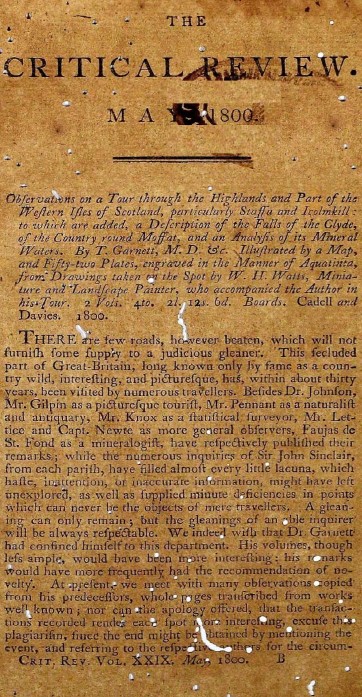 THE
CRITICAL REVIEW.
MAY, 1800.
Obſervations on a Tour through the Highlands and Part of the
Weſtern Iſles of Scotland, particularly Staffa and Icolmkill:
to which are added, a Deſcription of the Falls of the Clyde,
of the Country round Moffat, and an Analyſis of its Mineral
Waters. By T. Garnett, M.D. &c. Illuſtrated by a Map,
and Fifty-two Plates, engraved in the Manner of Aquatinta,
from Drawings taken on the Spot by W. H. Watts, Minia-
ture and Landſcape Painter, who accompanied the Author in
his Tour. 2 Vols. 4to. 2l. 12s. 6d. Boards. Cadell and
Davies. 1800.
THERE are few roads, however beaten, which will not
furniſh ſome ſupply to a judicious gleaner. This ſecluded
part of Great-Britain, long known only by fame as a coun-
try wild, intereſting, and pictureſque, has, within about thirty
years, been viſited by numerous travellers. Beſides Dr. Johnſon,
Mr. Gilpin as a pictureſque touriſt, Mr. Pennant as a naturaliſt
and antiquary, Mr. Knox as a ſtatiſtical ſurveyor, Mr. Let-
tice and Capt. Newte as more general obſervers, Faujas de
St. Fond as a mineralogiſt, have reſpectively publiſhed their
remarks; while the numerous inquiries of Sir John Sinclair,
from each pariſh, have filled almoſt every little lacuna, which
haſte, inattention, or inaccurate information, might have left
unexplored, as well as ſupplied minute deficiencies in points
which can never be the objects of mere travellers. A glean-
ing can only remain; but the gleanings of an able inquirer
will be always reſpectable. We indeed wiſh that Dr. Garnett
had confined himſelf to this department. His volumes, though
leſs ample, would have been more intereſting: his remarks
would have more frequently had the recommendation of no-
velty. At preſent, we meet with many obſervations copied
from his predeceſſors, whole pages tranſcribed from works
well known; nor can the apology offered, that the tranſac-
tions recorded render each ſpot more intereſting, excuſe this
plagiariſm, ſince the end might be obtained by mentioning the
event, and referring to the reſpective authors for the circum-
CRIT. REV. VOL. XXIX. May, 1800. B